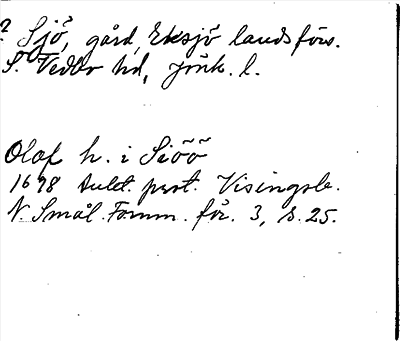 ? Sjö, gård, Eksjö landsförs.
S. Vedbo hd, Jönk. l.
Olof h. i Siöö
1698 Auld. prot. Visingsb.
N. Smål. Fornm. för. 3, s. 25.